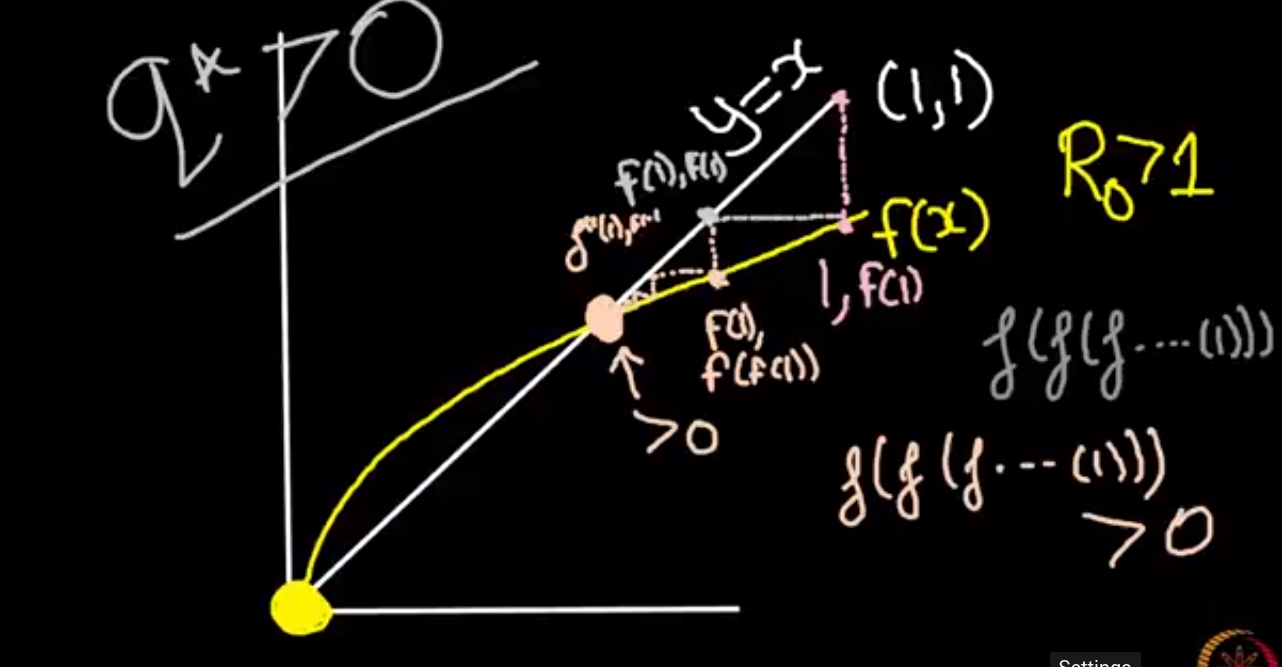 q* > 0
y=x
(1,1)
R₀>1
f(1), f(1)
f(x)
1, f(1)
f(1),
f(f(1))
>0
f(f(f....(1)))
f(f(f.--- (1)))
>0
Settings